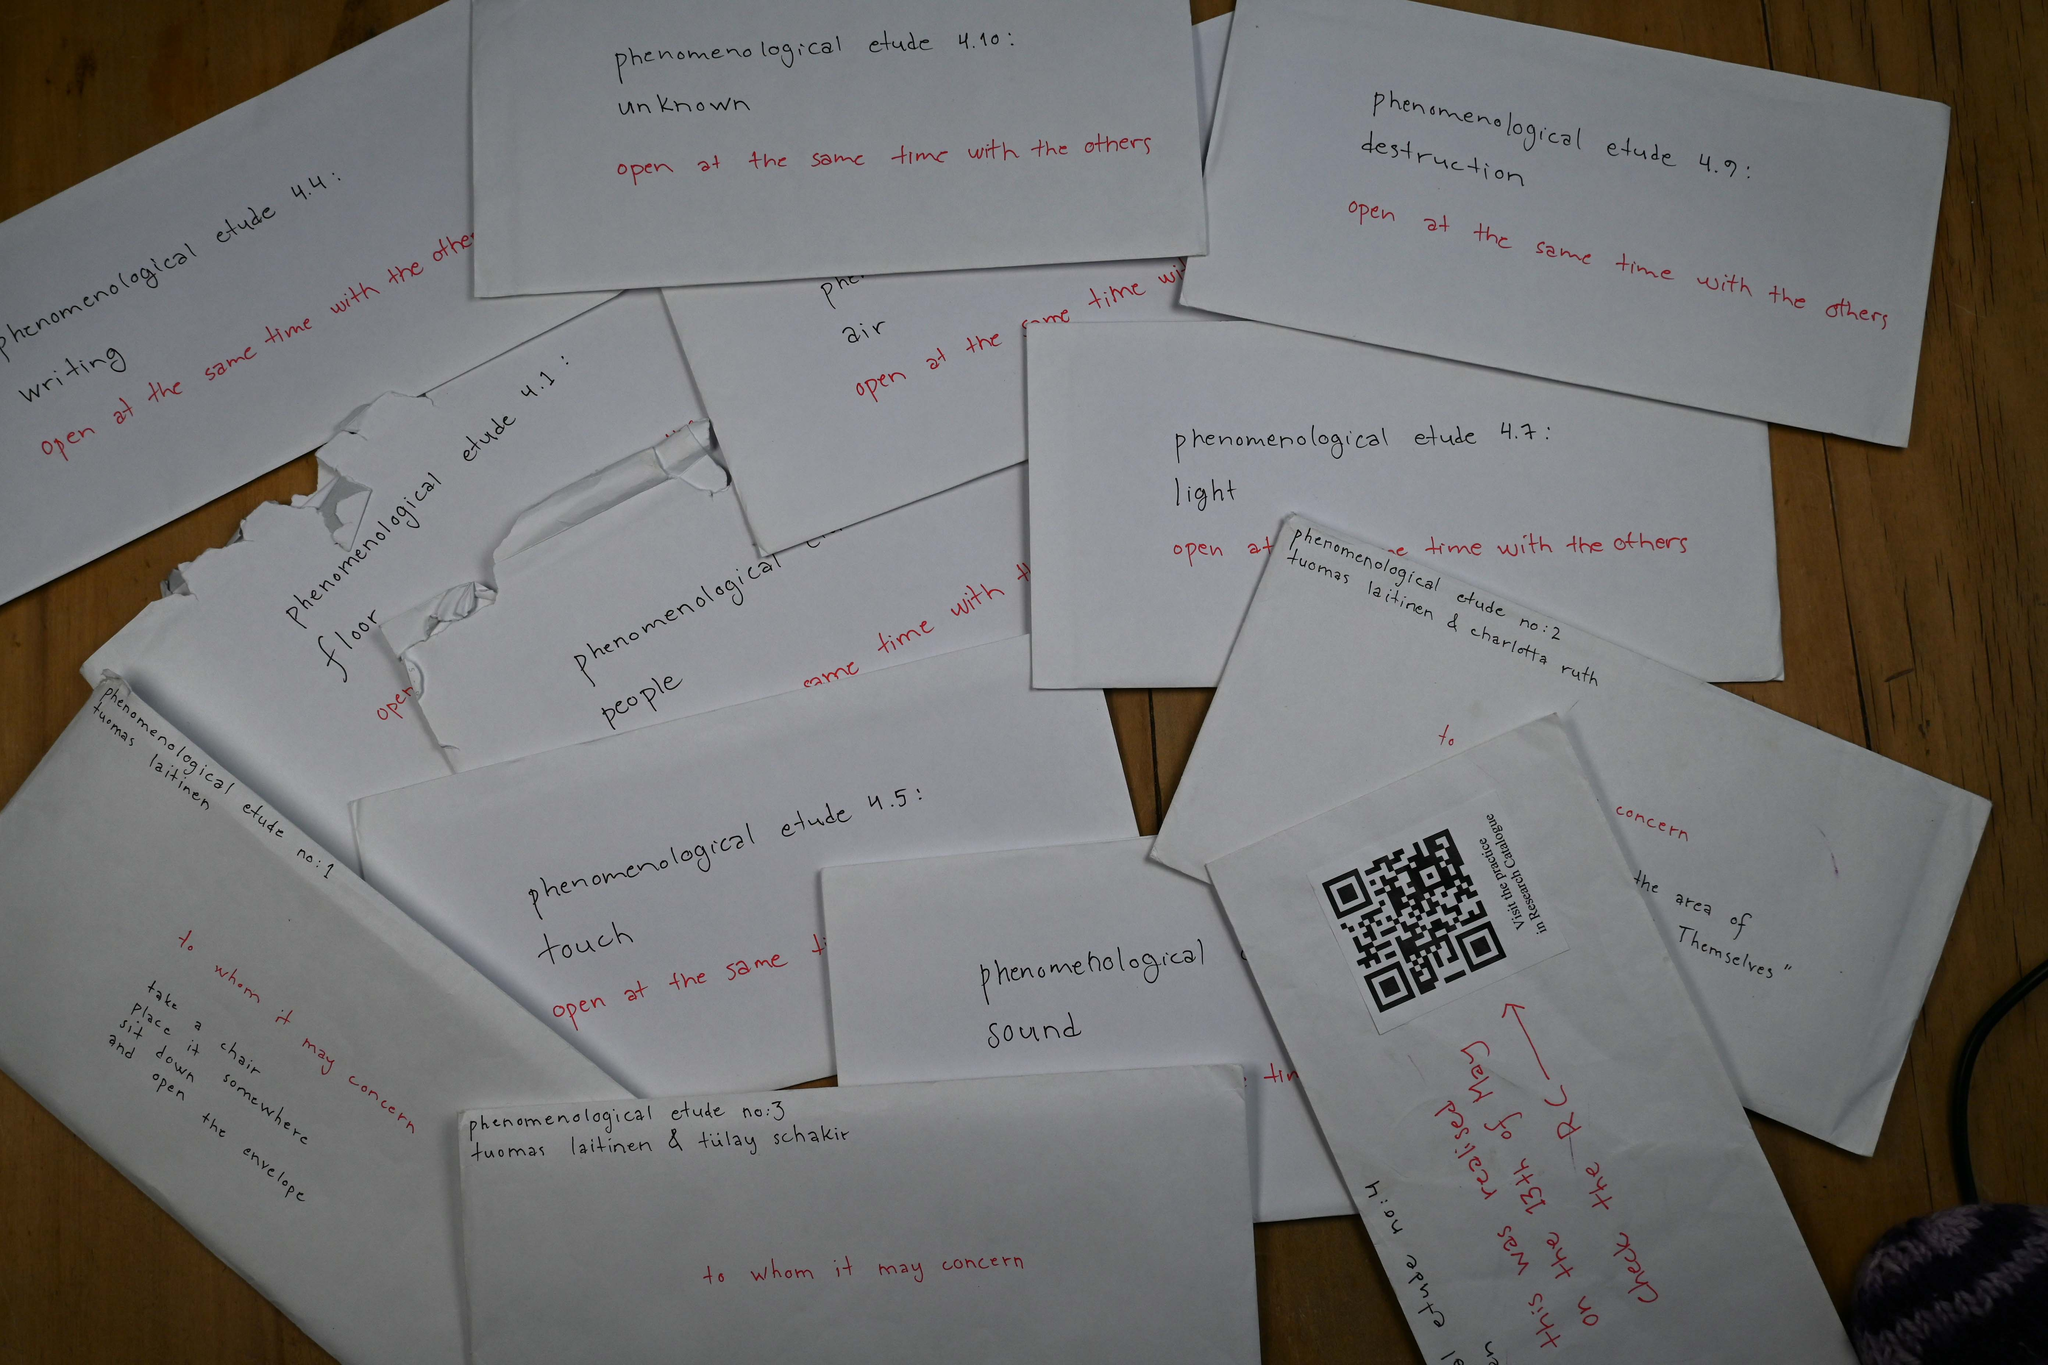 phenomenological etude 4.10:
unknown
open at the same time with the others
phenomenological etude 4.9:
destruction
open at the same time with the others
phenomenological etude 4.4:
writing
open at the same time with the
air
open at the same time
phenomenological etude 4.1:
floor
open
phenomenological etude 4.7:
light
open at time with the others
phenomenological
people
same time with
phenomenological etude no:2
tuomas laitinen & charlotta ruth
to
concern
the area of
Themselves"
phenomenological etude no:1
tuomas laitinen
to whom it may concern
take a chair
place it somewhere
sit down
and open the envelope
phenomenological etude 4.5:
touch
open at the same
phenomenological
sound
phenomenological etude no:3
tuomas laitinen & tülay schakir
to whom it may concern
Visit the practice
in Research Catalogue
etude no:4
this was realised
on the 13th of May
check the RC